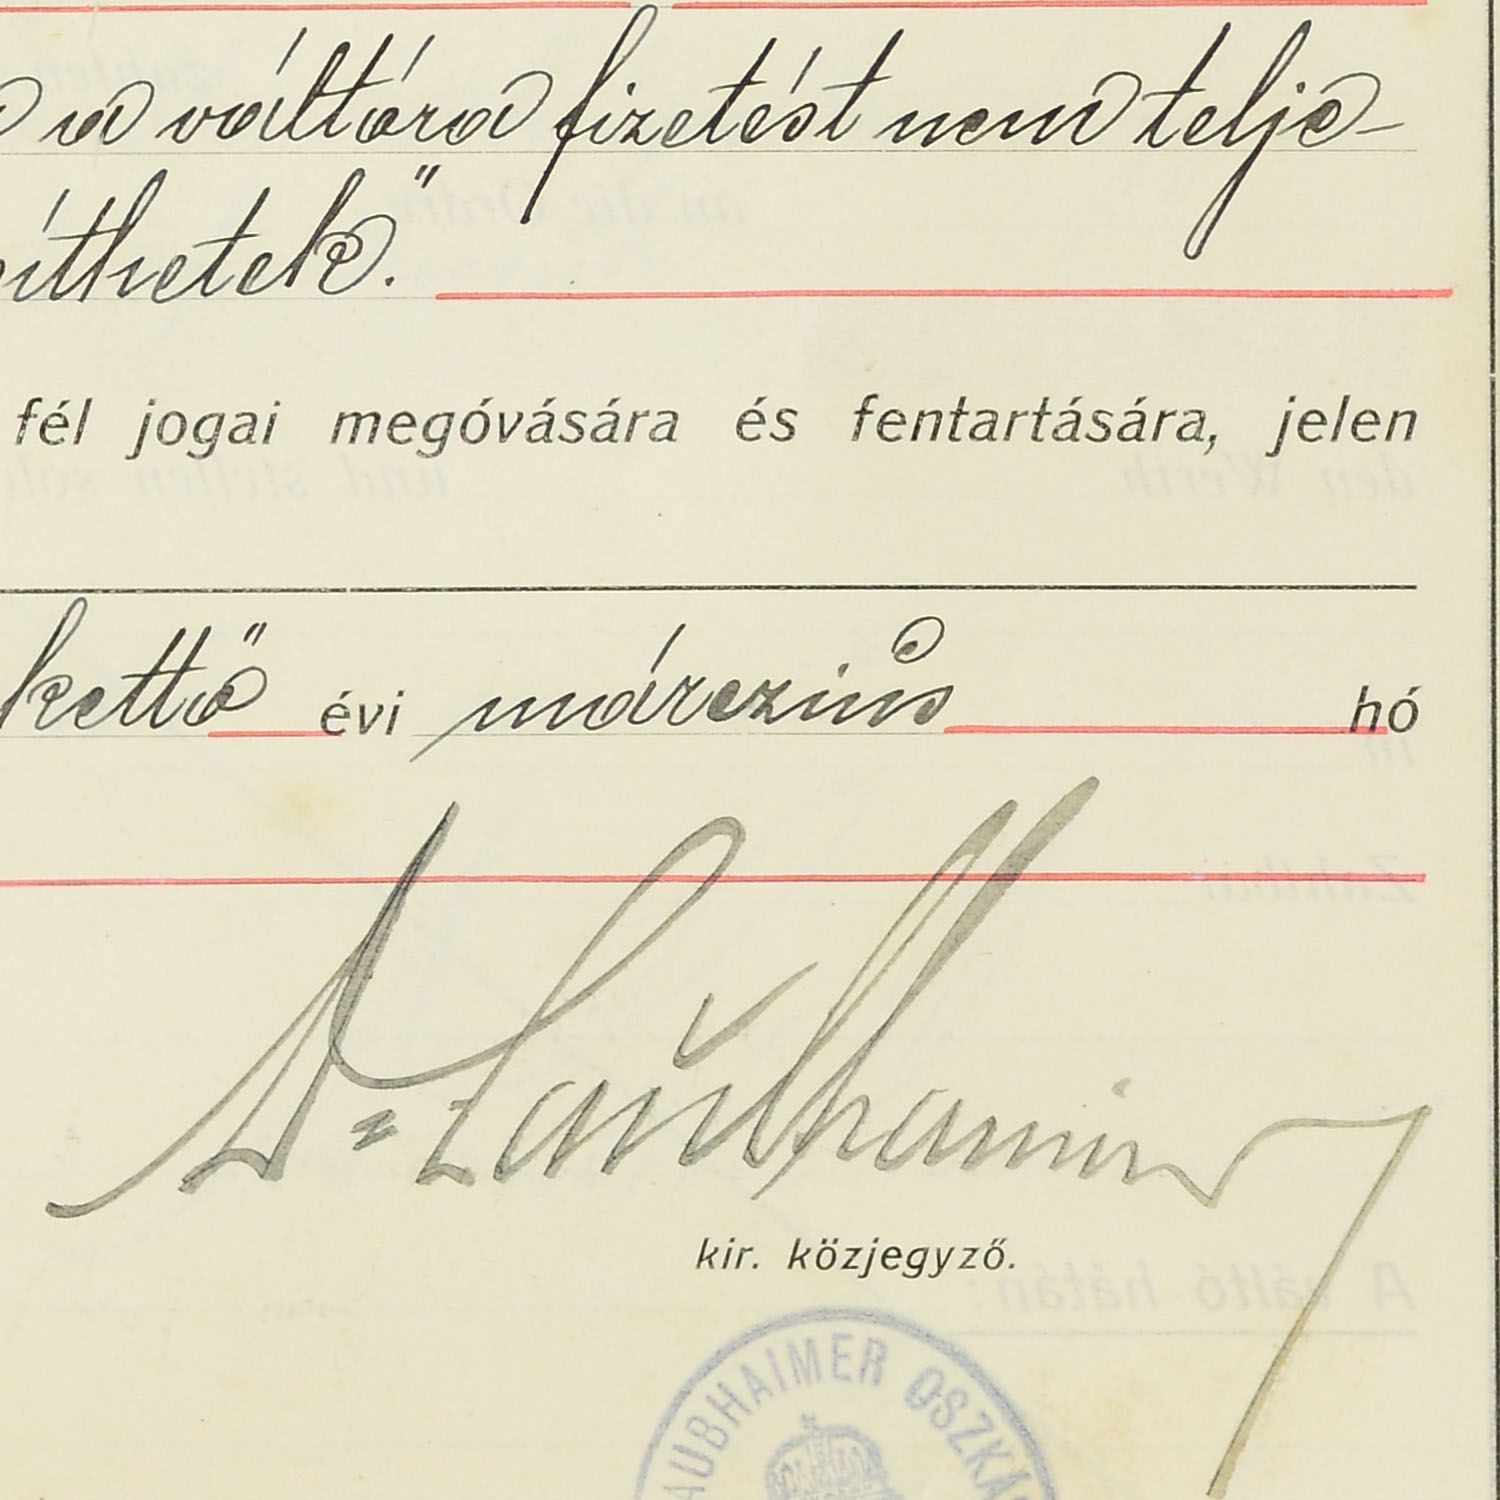 a váltóra fizetést nem telje-
síthetek."
fél jogai megóvására és fentartására, jelen
kettő évi márczius hó
Dr Laubhaimer
kir. közjegyző.
AUBHAIMER OSZKÁ